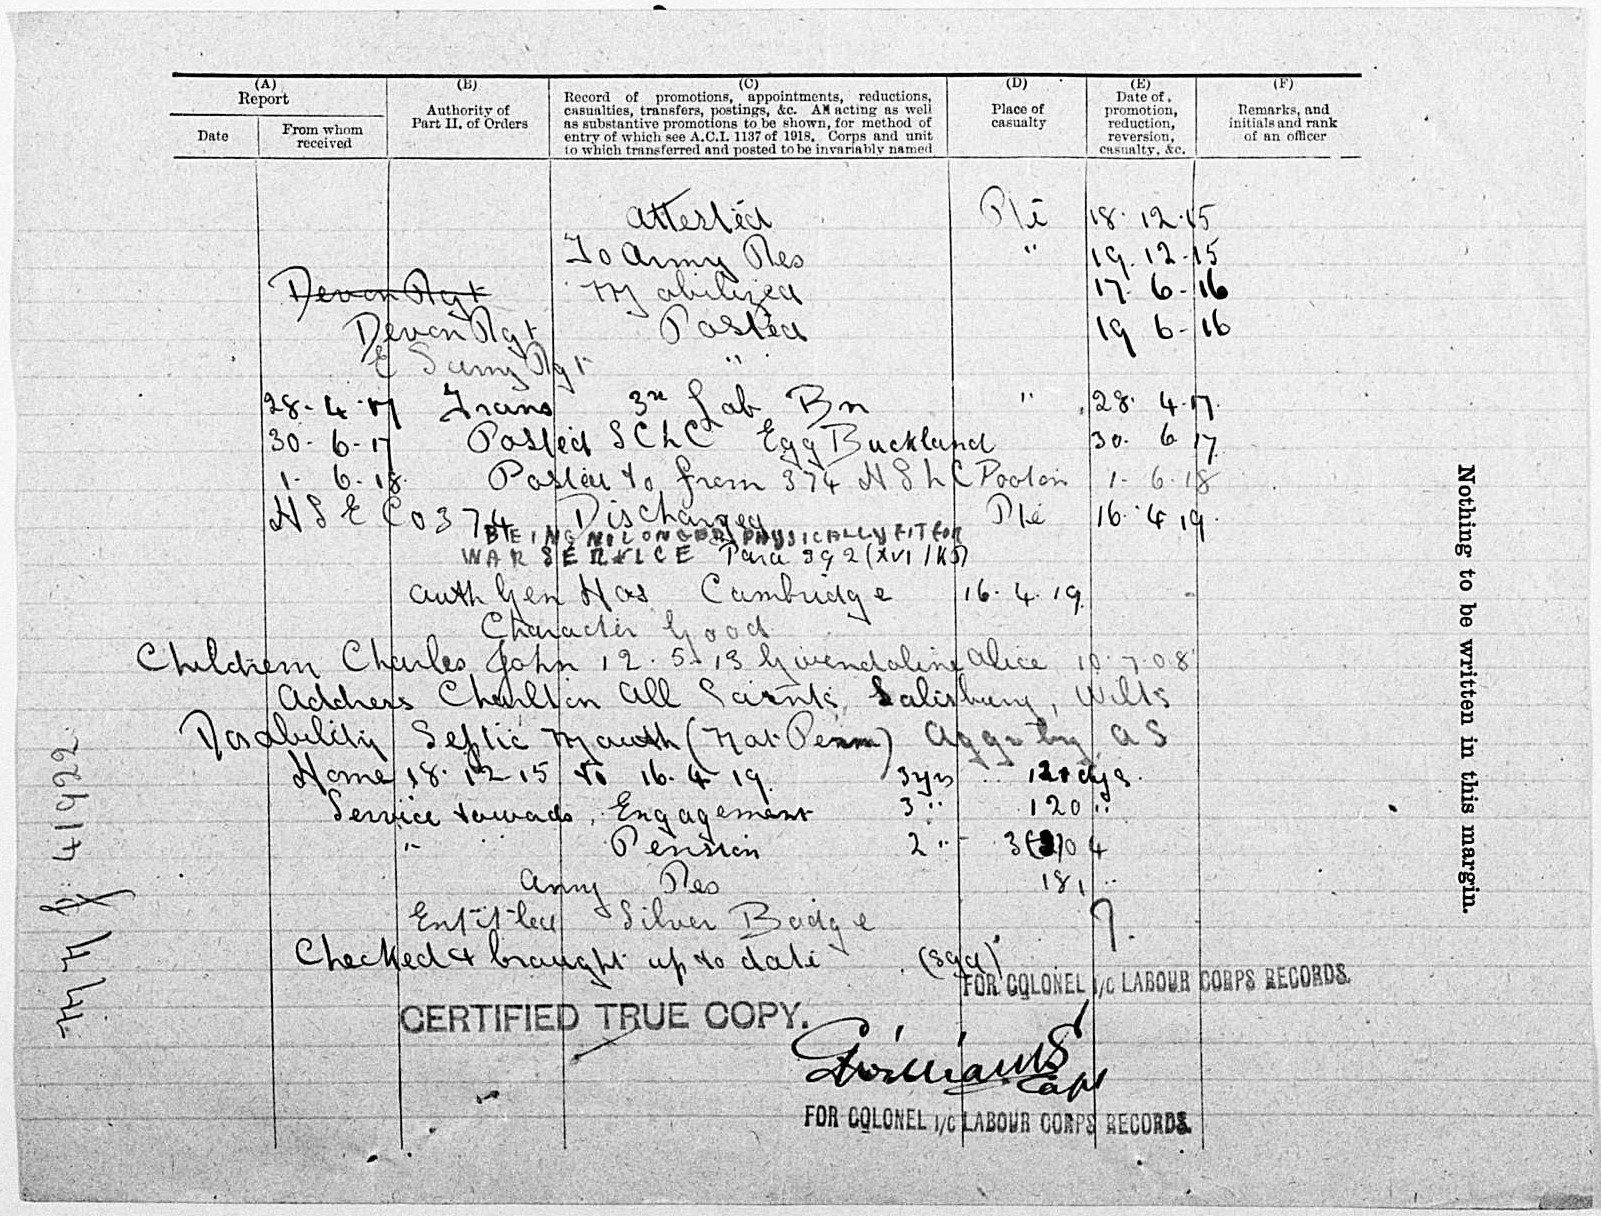 (A) Report
Date
From whom received
(B)
Authority of
Part II. of Orders
(C)
Record of promotions, appointments, reductions,
casualties, transfers, postings, &c. All acting as well
as substantive promotions to be shown, for method of
entry of which see A.C.I. 1137 of 1918. Corps and unit
to which transferred and posted to be invariably named
(D)
Place of
casualty
(E)
Date of
promotion,
reduction,
reversion,
casualty, &c.
(F)
Remarks, and
initials and rank
of an officer
Attested 18. 12. 15
To Army Res " 19. 12. 15
Devon Rgt Mobilized 17. 6. 16
Devon Rgt Posted 19 6. 16
E Surry Rgt "
28. 4. 17 Trans 3rd Lab Bn " 28. 4. 17.
30. 6. 17 Posted SCLC Egg Buckland 30. 6 17.
1. 6. 18. Posted to from 374 HSLC 1. 6. 18
Co 374 Discharged 16. 4. 19.
BEING NO LONGER PHYSICALLY FIT FOR
WAR SERVICE Para 392 (XVI) KR
auth Gen Hos Cambridge 16. 4. 19.
Character Good
Children Charles John 12. 5. 13 Gwendoline Alice 10. 7. 08
Address Charlton All Saints, Salisbury, Wilts
Disability Septic Mouth (Not Perm) Aggr by AS
Home 18. 12. 15 to 16. 4. 19. 3 yrs 121 dys.
Service towards Engagement 3 " 120 "
" Pension 2 " 304
Army Res 181 "
Entitled Silver Badge
Checked & brought up to date (sgd)
FOR COLONEL I/C LABOUR CORPS RECORDS.
CERTIFIED TRUE COPY.
GWilliams
Capt
FOR COLONEL I/C LABOUR CORPS RECORDS.
Nothing to be written in this margin.
41922